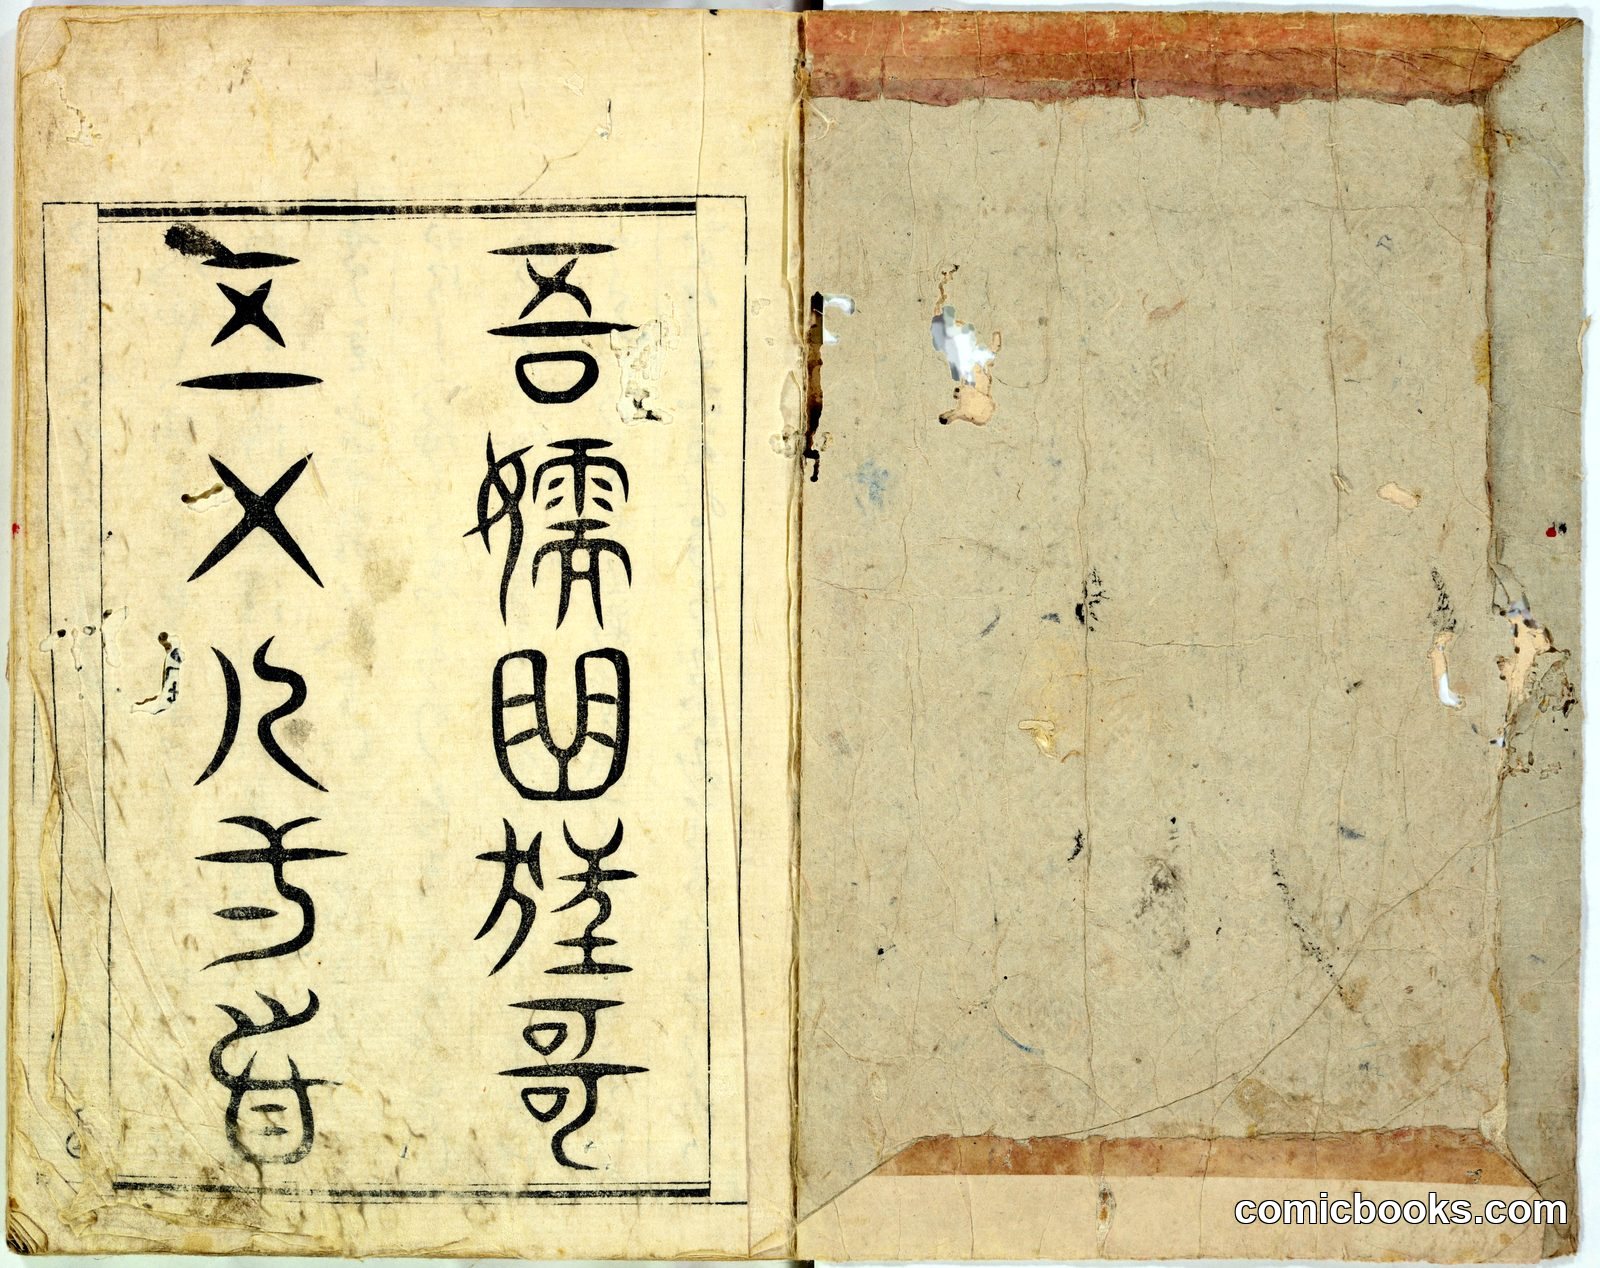 吾嬬曲狂哥
五十人一首
comicbooks.com